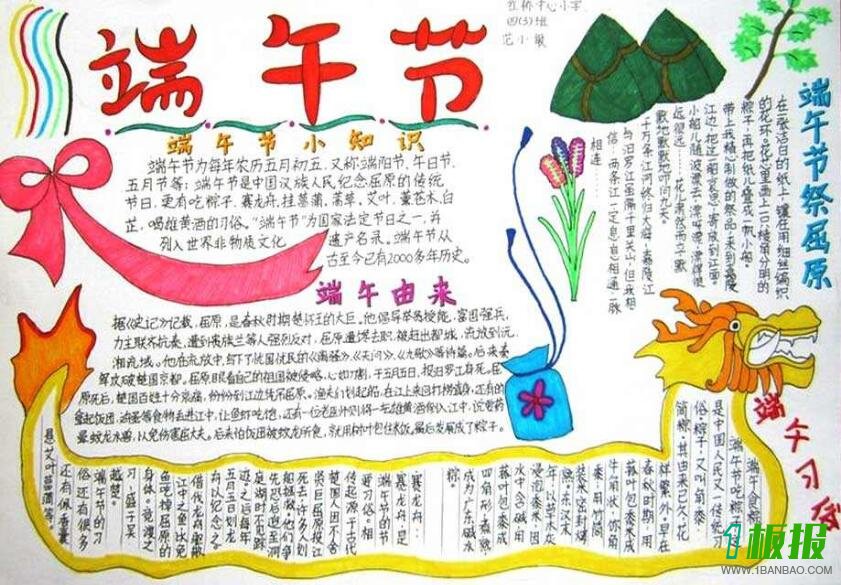 红桥中心小学
四(3)班
端午节
端午节小知识
端午节为每年农历五月初五,又称端阳节、午日节、
五月节等;端午节是中国汉族人民纪念屈原的传统
节日,更有吃粽子,赛龙舟,挂菖蒲,蒿草,艾叶,薰苍术,白
芷,喝雄黄酒的习俗。"端午节"为国家法定节日之一,并
列入世界非物质文化 遗产名录。端午节从
古至今已有2000多年历史。
端午由来
据《史记》记载,屈原,是春秋时期楚怀王的大臣。他倡导举贤授能,富国强兵,
力主联齐抗秦,遭到贵族兰等人强烈反对,屈原遭馋去职,被赶出都城,流放到沅、
湘流域。他在流放中,写下了忧国忧民的《离骚》、《天问》、《九歌》等诗篇。后来秦
军攻破楚国京都。屈原眼看自己的祖国被侵略,心如刀割,于五月五日,投汨罗江身死。屈
原死后,楚国百姓十分哀痛,纷纷到江边凭吊屈原。渔夫们划起船,在江上来回打捞真身,还有的
端午节祭屈原
在一张洁白的纸上,镶在用细丝编织
的花环。在花心里画上一口棱角分明的
粽子,再把纸小叠成一帆小船。
带上我精心制做的祭品,来到嘉陵
江边,把这相衰思,寄放到江面。
千万条江河终归大海,嘉陵江
与汨罗江虽隔千里关山,但我相
信,两条江一定息息相通一脉
相连……
端午习俗
端午食粽:
端午节吃粽子,
是中国人民又一传统习
俗。粽子,又叫"角黍"、
"筒粽"。其由来已久,花
样繁外。早在
春秋时期,用
菰叶包黍米成
牛角状,称"角
黍";用竹筒
装米密封烤
熟,东汉末
年,以草木灰
浸泡黍米,因
水中含碱,用
菰叶包黍成
四角形,煮熟,
成为广东碱水
粽。
赛龙舟:
赛龙舟,是
端午节的节
要习俗。相
传起源于古代
楚国人因不舍
得贤臣屈原投江
死去,许多人划
船拯救。他们争
先恐后追至洞
庭湖时不见踪
迹。之后每年
五月五日划龙
舟以纪念之。
借伐龙舟驱散
江中之鱼,以免
鱼吃掉屈原的
身体。竞渡之
习,盛于吴
越楚。
端午节的习
俗还有很多,
还有佩香囊、
悬艾叶菖蒲等。
1板报
WWW.1BANBAO.COM